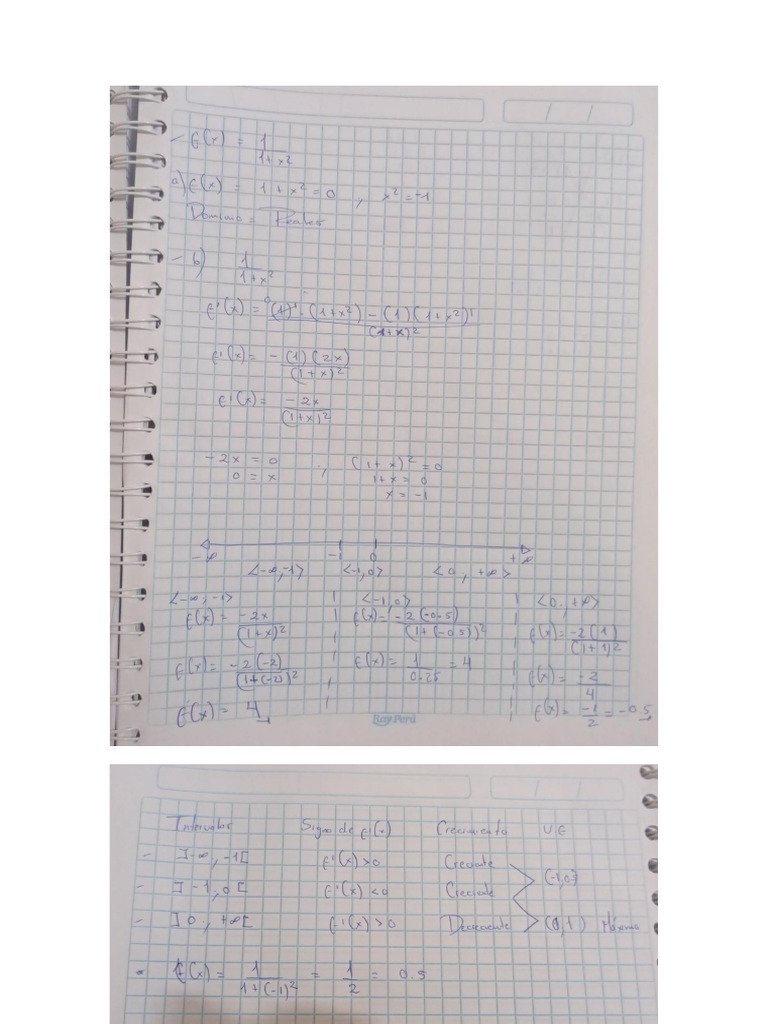 - f(x) = 1/(1+x²)
a) f(x) = 1+x² = 0 , x² = -1
Dominio = Reales
- b) 1/(1+x²)
f'(x) = (1)'·(1+x²) - (1)(1+x²)' / (1+x)²
f'(x) = -(1)(2x)/(1+x)²
f'(x) = -2x/(1+x)²
-2x = 0 ; (1+x)² = 0
0 = x 1+x = 0
x = -1
-∞ -1 0 +∞
<-∞,-1> <-1,0> <0, +∞>
<-∞, -1> <-1,0> <0, +∞>
f(x) = -2x/(1+x)² f(x) = -2(-0.5)/(1+(-0.5))² f(x) = -2(1)/(1+1)²
f(x) = -2(-2)/(1+(-2))² f(x) = 1/0.25 = 4 f(x) = -2/4
f(x) = 4 f(x) = -1/2 = -0.5
Ray Perú
Intervalos Signo de f'(x) Crecimiento V.E
- ]-∞, -1[ f'(x) > 0 Creciente
(-1,0.5)
- ]-1, 0[ f'(x) < 0 Creciente
- ]0, +∞[ f'(x) > 0 Decreciente (0,1) Máximo
- f(x) = 1/(1+(-1)²) = 1/2 = 0.5